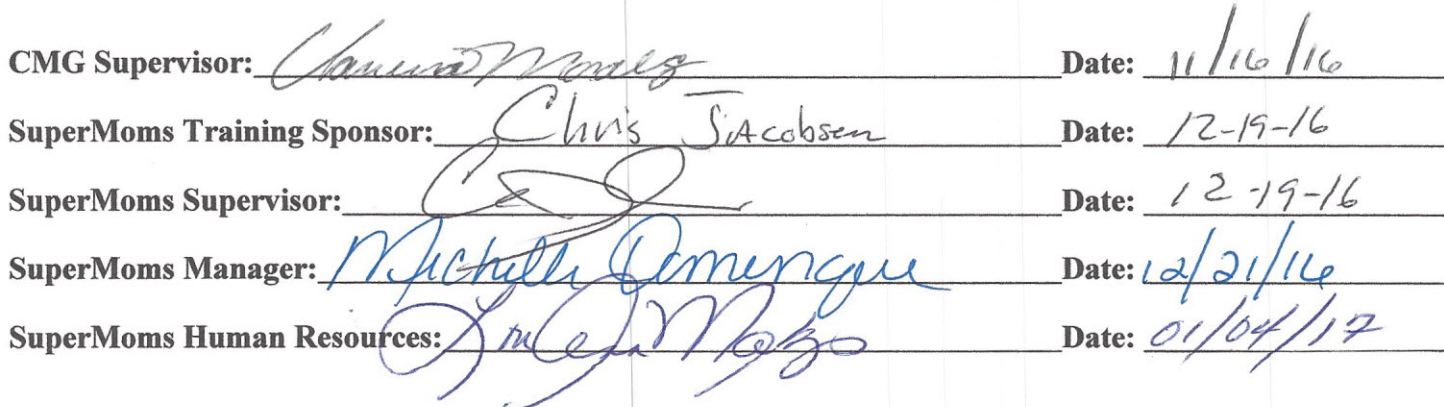 CMG Supervisor: Date: 11/16/16
SuperMoms Training Sponsor: Chris Jacobsen Date: 12-19-16
SuperMoms Supervisor: Date: 12-19-16
SuperMoms Manager: Michelle Domingue Date: 12/21/16
SuperMoms Human Resources: Date: 01/04/17